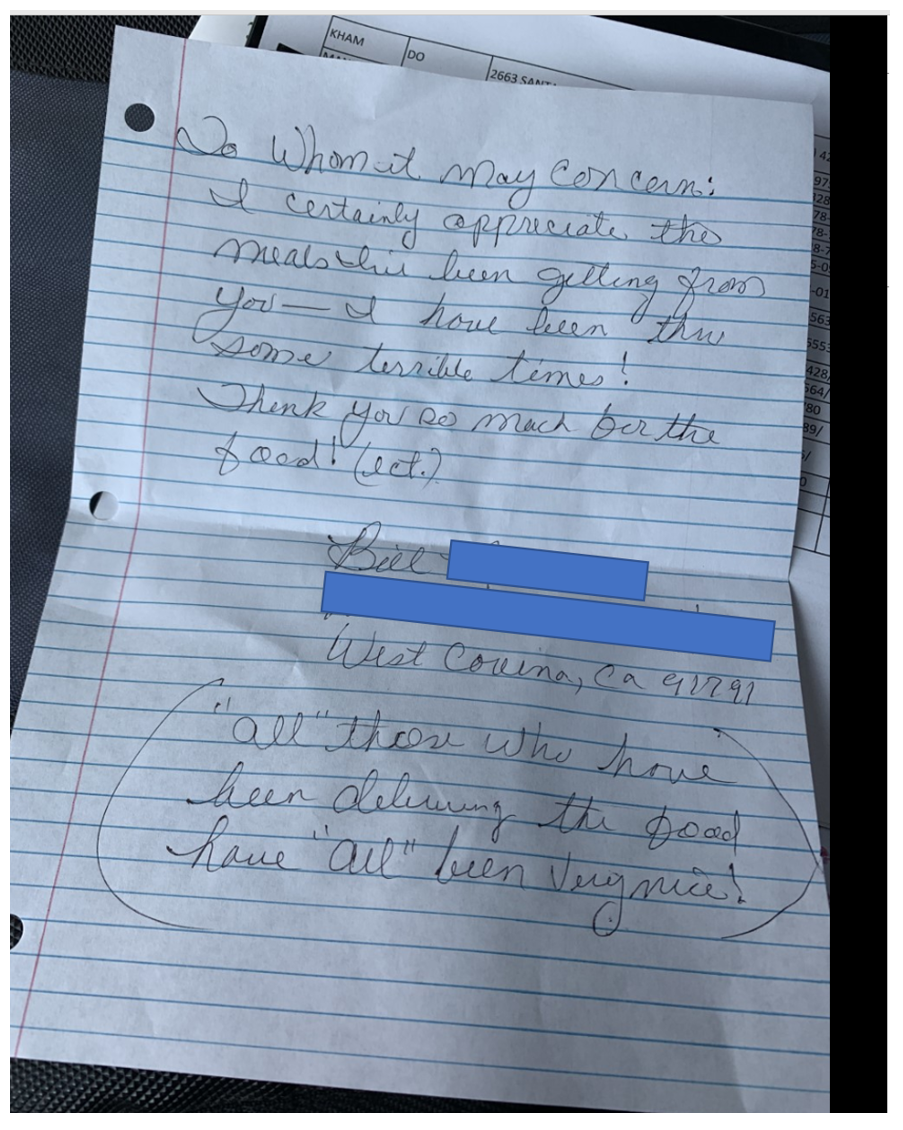 KHAM DO 2663 SANTA
To Whom it May Concern:
I certainly appreciate the
meals I've been getting from
you — I have been thru
some terrible times!
Thank you so much for the
food! (ect.)
Bill
West Covina, Ca 91791
"all" those who have
been delivering the food
have "all" been very nice!
97
328
78-
78-
8-7
5-0
-01
563
5553
428/
564/
780
89/